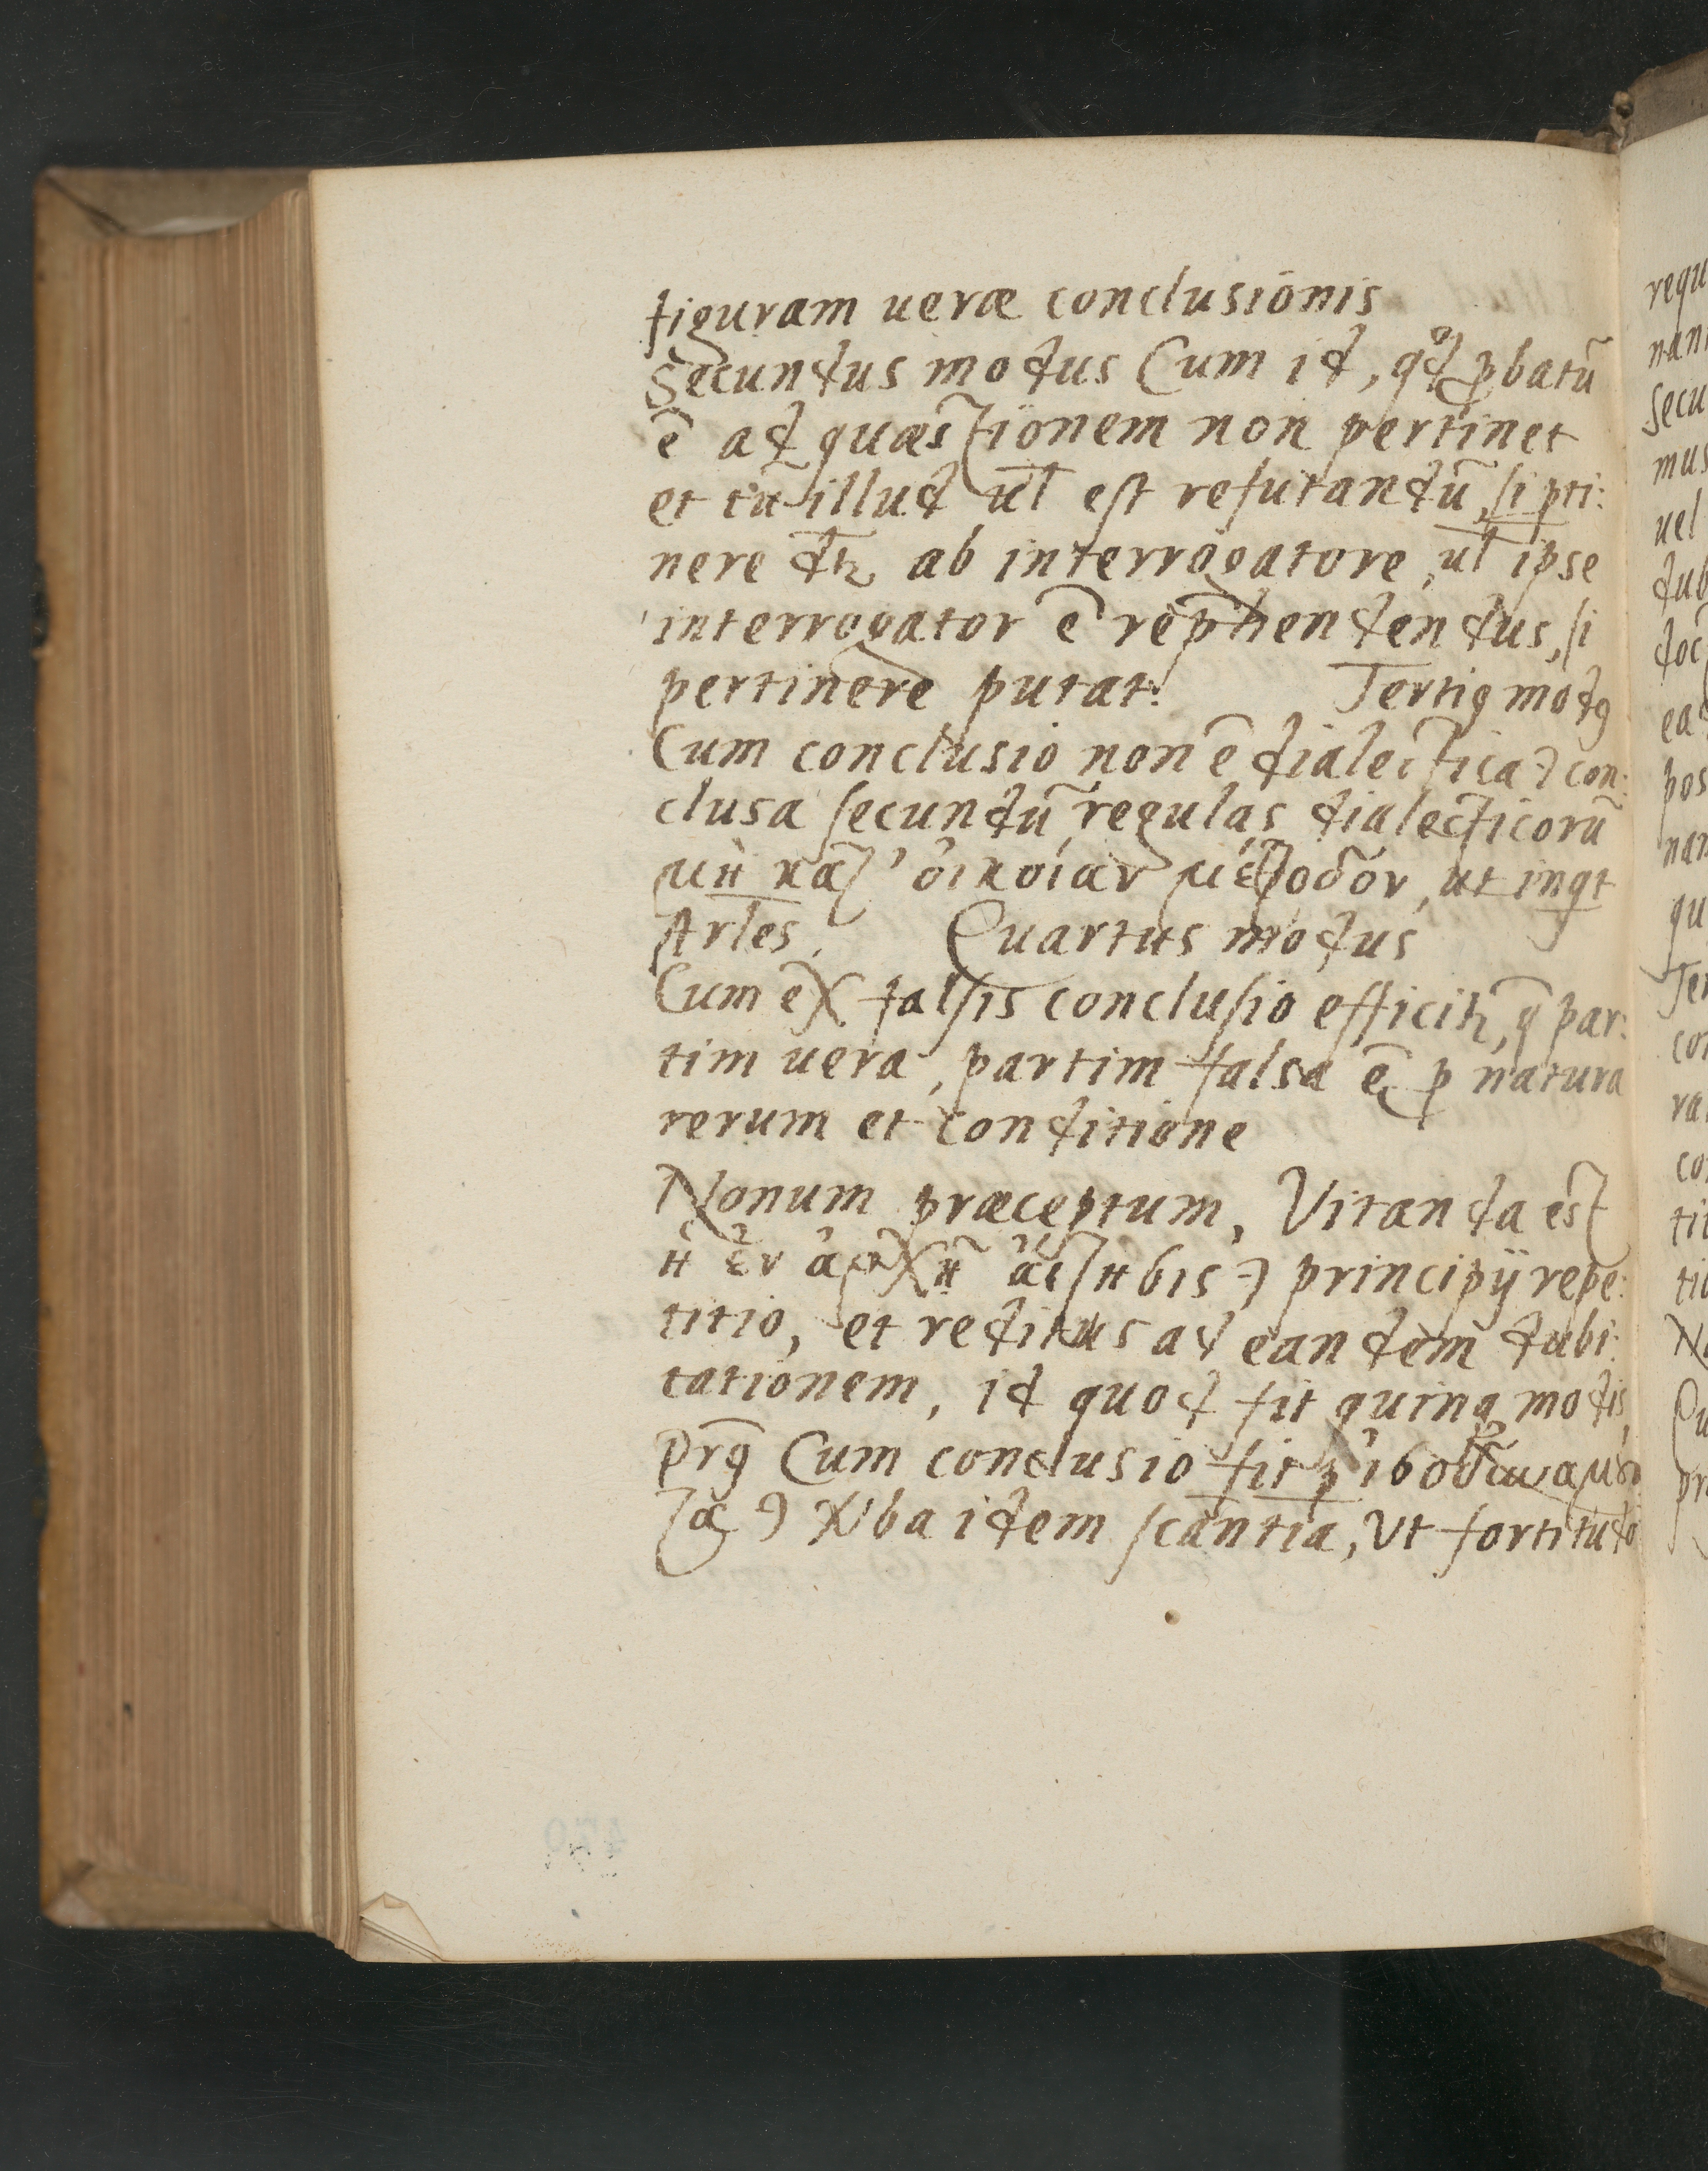 figuram ueræ conclusionis
Secundus modus Cum id, qd pbatū
ē ad quæstionem non pertinet
et tū illud ul est refutandū, si pti:
nere dr ab interrogatore, ul ipse
interrogator ē rephendendus, si
pertinere putat. Tertiꝰ modꝰ
Cum conclusio non ē dialectica, con:
clusa secundū regulas dialecticorū
μὴ κατ' ὀικοίαν μέθοδον, ut inqt
Arles. Quartus modus
Cum ex falsis conclusio efficitr, q par:
tim uera, partim falsa ē p natura
rerum et conditione
Nonum præceptum, Vitanda est
ἡ ἐν ἀρχῆ ἄιτησις principij repe:
titio, et reditus ad eandem dubi:
tationem, id quod fit quinq modis,
Prꝰ Cum conclusio fit p ἰσοδυναμοῦ
τα ba idem scantia, Vt fortitudo
requ
nan
secu
mus
uel
dub
doc
ea
pos
nam
qu
Ter
con
ra
co
tit
tio